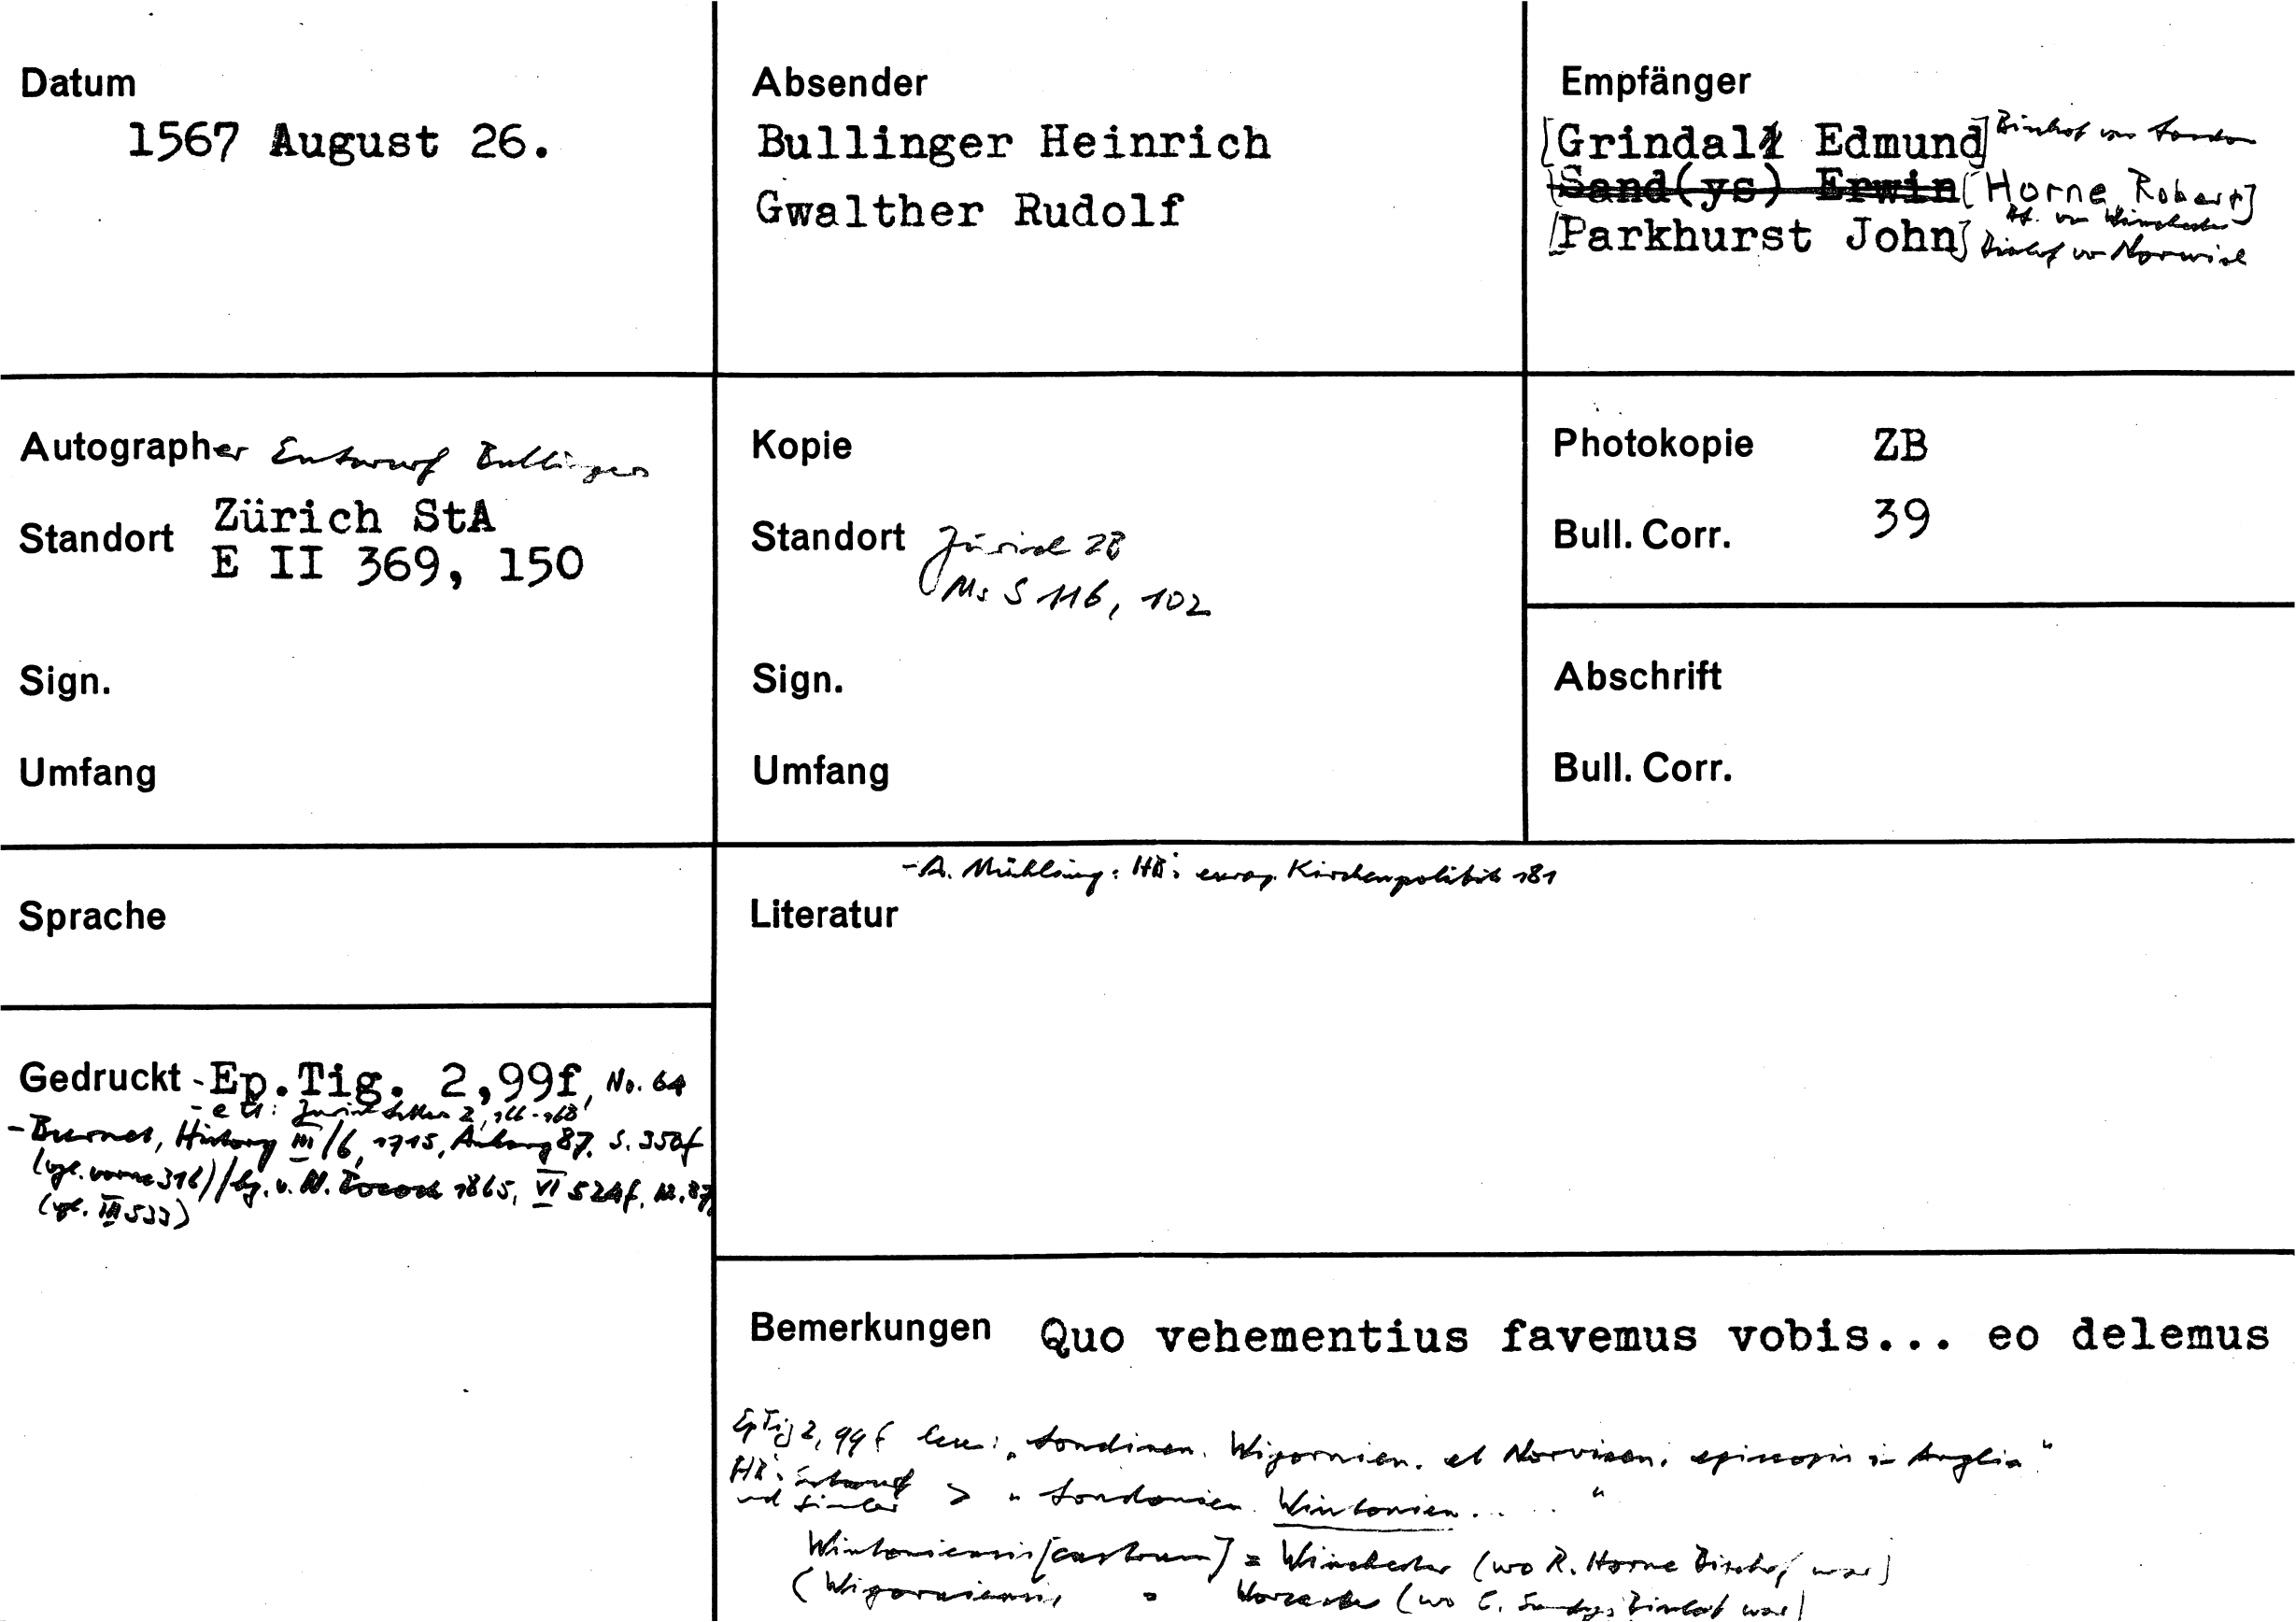 Datum
1567 August 26.
Absender
Bullinger Heinrich
Gwalther Rudolf
Empfänger
[Grindal Edmund] Bischof von London
Sand(ys) Erwin [Horne Robert]
Bf. von Winchester
[Parkhurst John] Bischof von Norwich
Autographer Entwurf Bullingers
Standort Zürich StA
E II 369, 150
Sign.
Umfang
Kopie
Standort Zürich ZB
Ms S 116, 102
Sign.
Umfang
Photokopie ZB
Bull. Corr. 39
Abschrift
Bull. Corr.
Sprache
- A. Mühling: HB's europ. Kirchenpolitik 181
Literatur
Gedruckt - Ep.Tig. 2,99f, No. 64
- e Ü: Zurich Letters 2, 166-168
- Burnet, History III/6, 1715, Anhang 87, S. 350f
(vgl. vorne 316) / hg. v. N. Pocock 1865, VI 524f, Nr. 87,
(vgl. III 533)
Bemerkungen Quo vehementius favemus vobis... eo delemus
EpTig 2, 99f : "Londinen. Wigornien. et Norvicen. episcopis in Anglia"
HB's Entwurf
und Simler > " Londonien. Wintonien. . . . "
Wintoniensis [castrum] = Winchester (wo R. Horne Bischof war)
(Wigorniensis = Worcester (wo E. Sandys Bischof war)